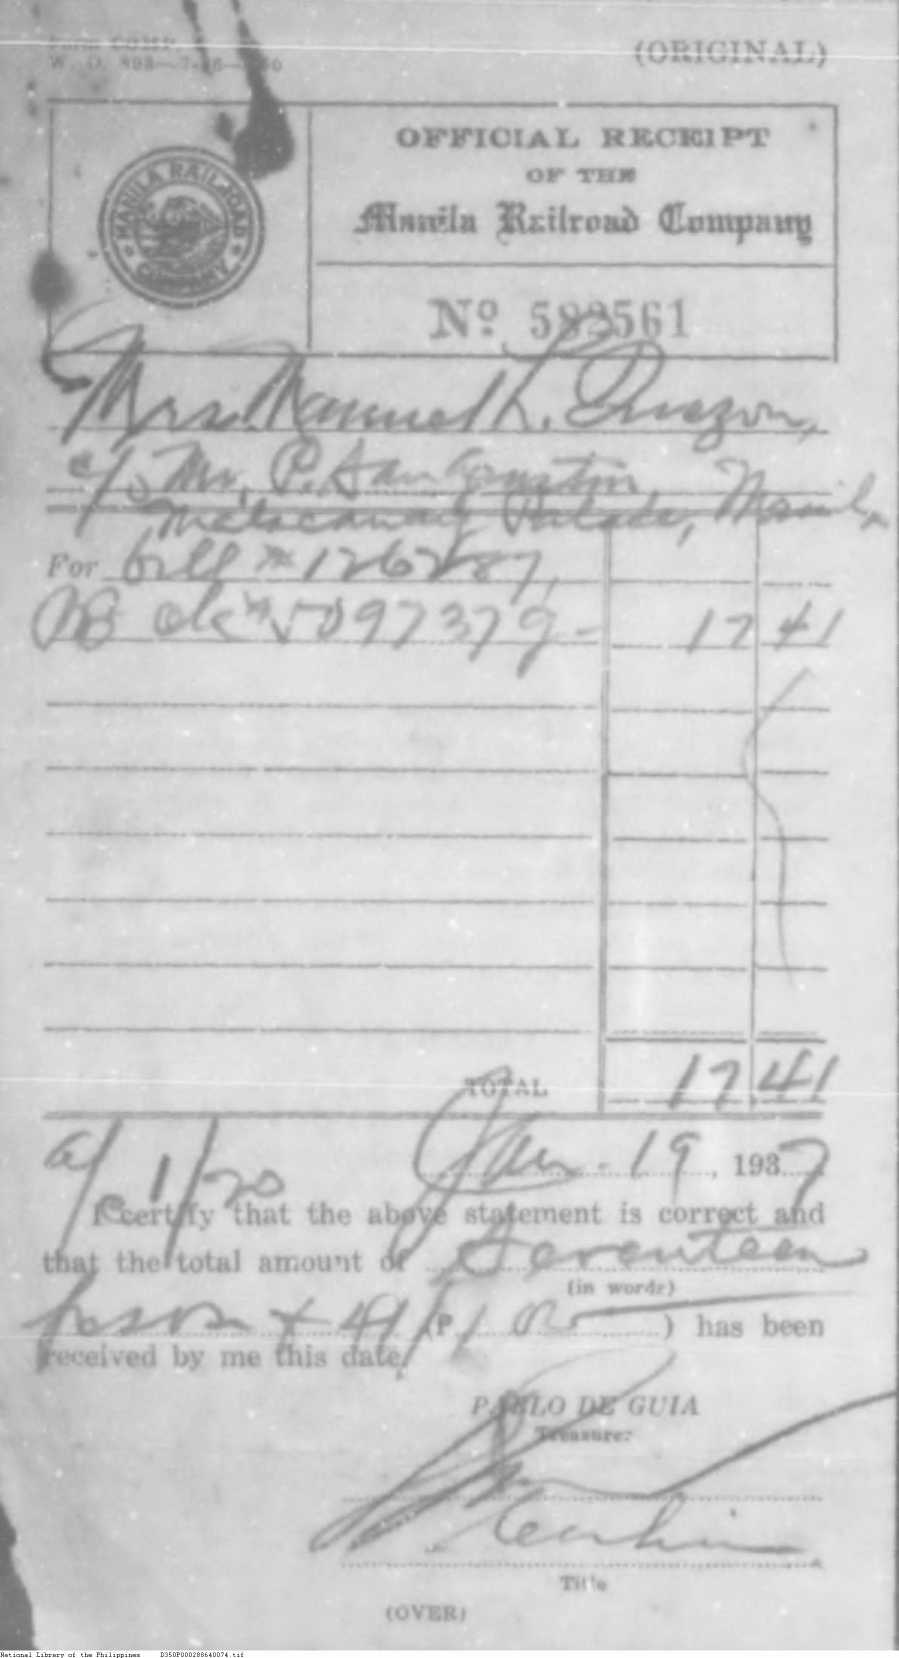 (ORIGINAL)
OFFICIAL RECEIPT
OF THE
Manila Railroad Company
MANILA RAILROAD
COMPANY
Nº 582561
Mrs. Manuel L. Quezon,
c/o Mr. P. San Agustin,
Malacañang Palace, Manila
For bill # 1262287,
NB ck # 5097379- 17 41
TOTAL 17 41
Jan - 19, 1937
1/20
I certify that the above statement is correct and
that the total amount of Seventeen
(in words)
pesos & 41/100 (P ) has been
received by me this date.
PABLO DE GUIA
Treasurer
Cashier
Title
(OVER)
National Library of the Philippines D350P000288640074.tif